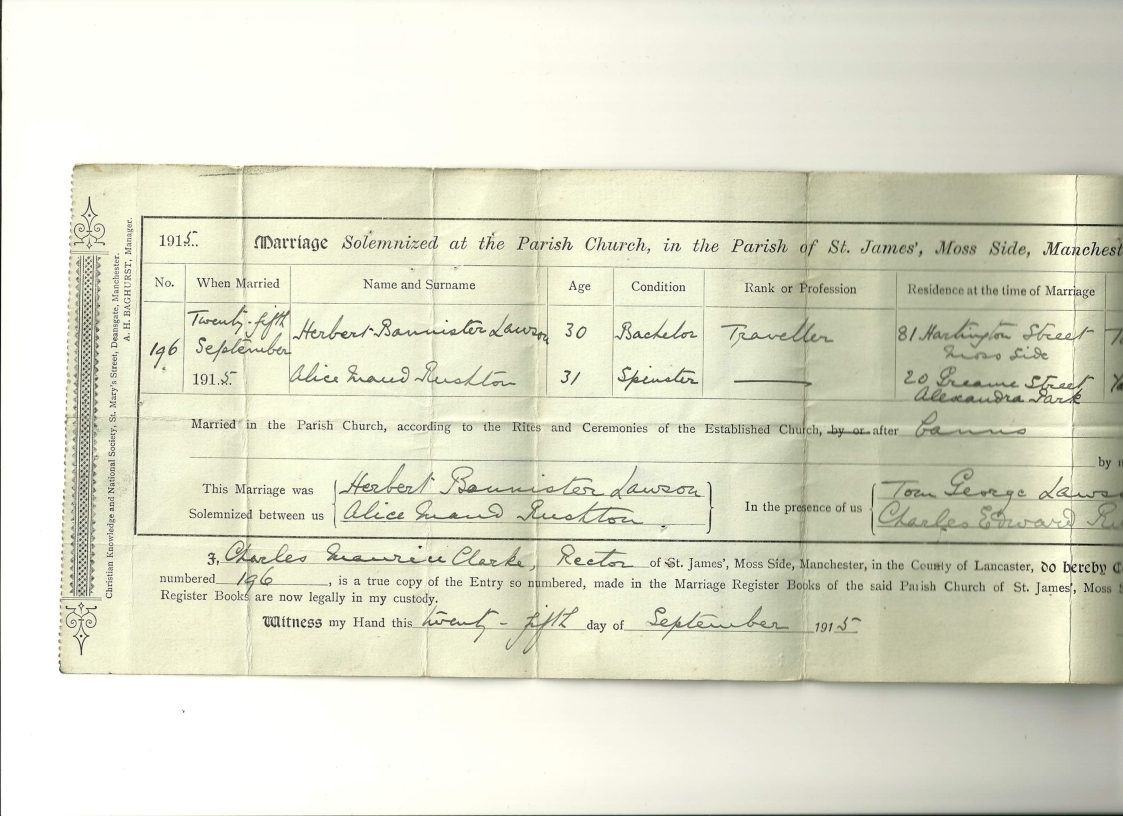 Christian Knowledge and National Society, St. Mary's Street, Deansgate, Manchester.
A. H. BAGHURST, Manager.
1915. Marriage Solemnized at the Parish Church, in the Parish of St. James', Moss Side, Manchest
No. When Married Name and Surname Age Condition Rank or Profession Residence at the time of Marriage
196 Twenty-fifth September 1915 Herbert Bannister Lawson 30 Bachelor Traveller 81 Hartington Street Moss Side
Alice Maud Rushton 31 Spinster —— 20 Street Alexandra Park
Married in the Parish Church, according to the Rites and Ceremonies of the Established Church, by or after Banns
by
This Marriage was Solemnized between us { Herbert Bannister Lawson } In the presence of us { Tom George Laws
Alice Maud Rushton Charles Edward Ru
I, Charles Maurice Clarke, Rector of St. James', Moss Side, Manchester, in the County of Lancaster, do hereby C
numbered 196, is a true copy of the Entry so numbered, made in the Marriage Register Books of the said Parish Church of St. James', Moss
Register Books are now legally in my custody.
Witness my Hand this twenty-fifth day of September 1915